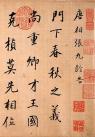 唐相張九齡告
門下春秋之義
尚重卿才王國
克楨莫先相位